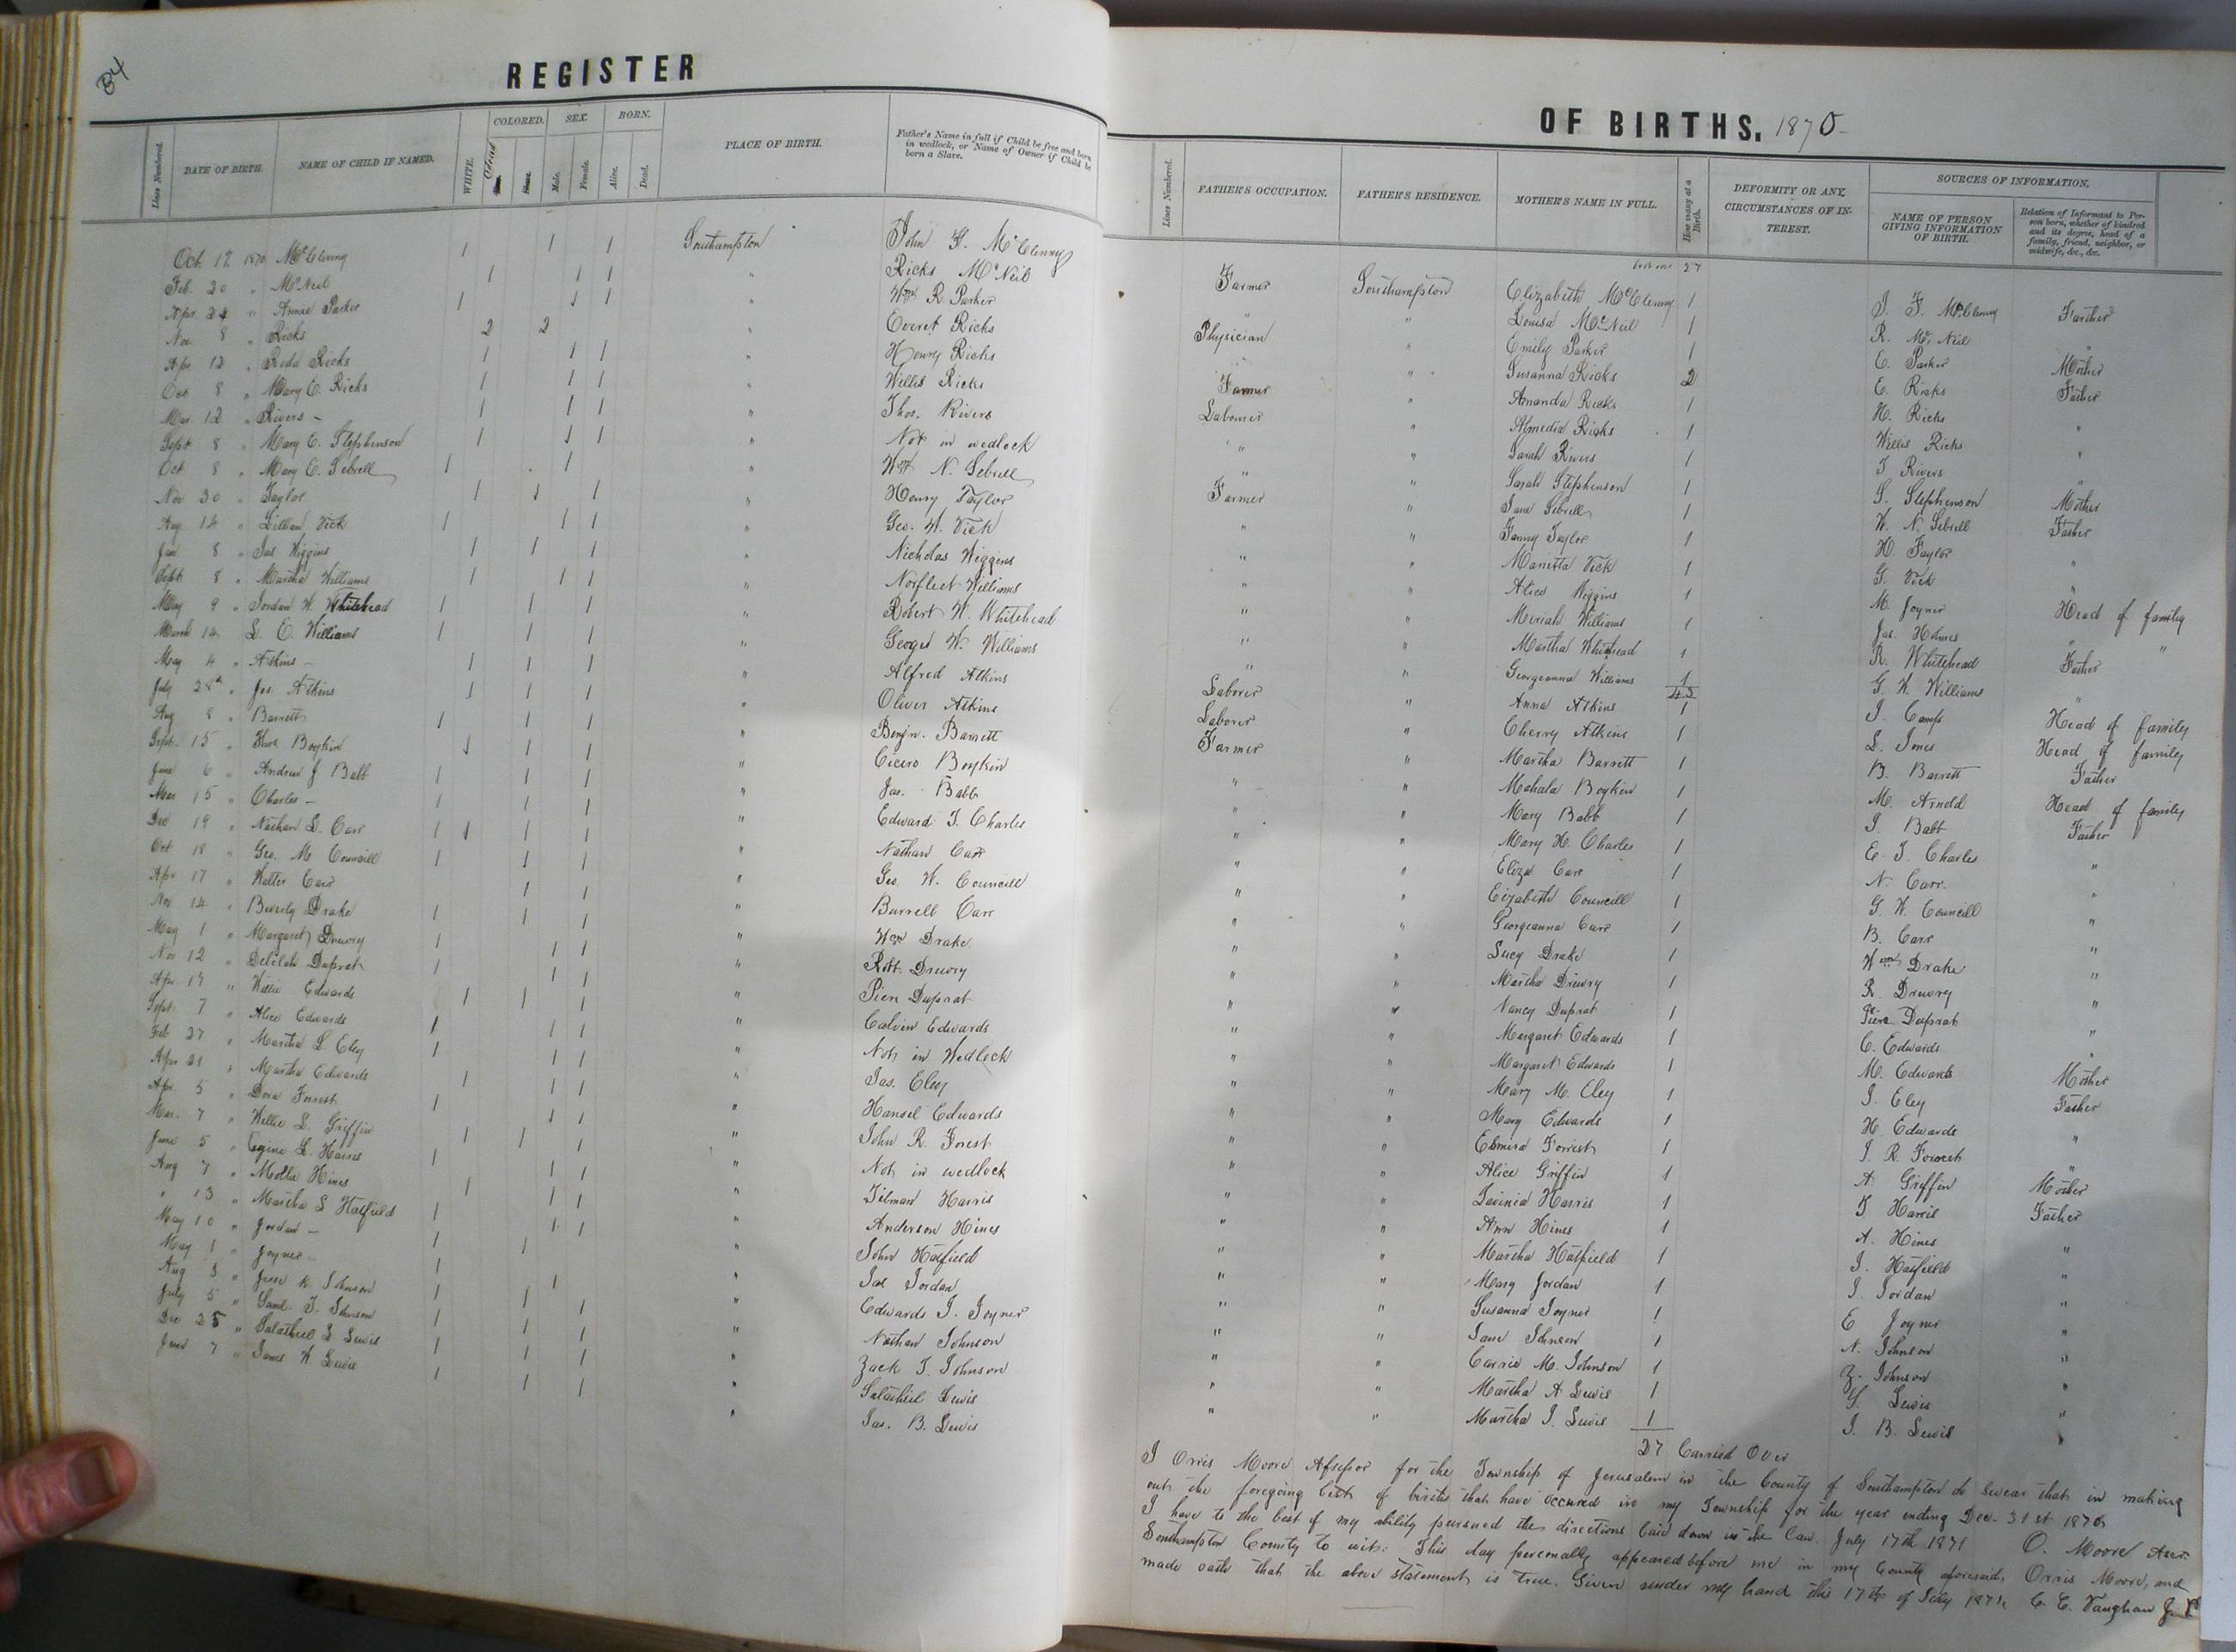 34
REGISTER
OF BIRTHS. 1870
Lines Numbered. DATE OF BIRTH. NAME OF CHILD IF NAMED. WHITE. COLORED. SEX. Male. Female. BORN. Alive. Dead. PLACE OF BIRTH. Father's Name in full if Child be free and born in wedlock, or Name of Owner if Child be born a Slave.
Lines Numbered. FATHER'S OCCUPATION. FATHER'S RESIDENCE. MOTHER'S NAME IN FULL. How many at a Birth. DEFORMITY OR ANY CIRCUMSTANCES OF INTEREST. SOURCES OF INFORMATION. NAME OF PERSON GIVING INFORMATION OF BIRTH. Relation of Informant to Person born, whether of kindred and its degree, head of a family, friend, neighbor, or midwife, &c., &c.
27
Oct. 12 1870 McClenny 1 1 1 Southampton John F. McClenny Farmer Southampton Elizabeth McClenny 1 J. F. McClenny Farther
Feb. 20 " McNeil 1 1 1 " Ricks McNeil " " Louisa McNeil 1 R. McNeil "
Apr. 24 " Annie Parker 1 1 1 " Wm R. Parker Physician " Emily Parker 1 E. Parker Mother
Nov. 8 " Ricks 2 2 " Everet Ricks " " Susanna Ricks 2 E. Ricks Father
Apr. 12 " Rida Ricks 1 1 1 " Henry Ricks Farmer " Amanda Ricks 1 H. Ricks "
Oct 8 " Mary E. Ricks 1 1 1 " Willis Ricks Labourer " Almedia Ricks 1 Willis Ricks "
Mar. 12 " Rivers - 1 1 1 " Thos. Rivers " " Sarah Rivers 1 T Rivers "
Sept 8 " Mary E. Stephenson 1 1 1 " Not in wedlock " " Sarah Stephenson 1 S. Stephenson Mother
Oct 8 " Mary E. Sebrell 1 1 " Wm N. Sebrell Farmer " Jane Sebrell 1 W. N. Sebrell Father
Nov 30 " Taylor 1 1 1 " Henry Taylor " " Fanny Taylor 1 H. Taylor "
Aug 14 " Lillian Vick 1 1 1 " Geo. W. Vick " " Marietta Vick 1 G. Vick "
Jan 8 " Jas Wiggins 1 1 1 " Nicholas Wiggins " " Alice Wiggins 1 M. Joyner Head of family
Sept 8 " Martha Williams 1 1 1 " Norfleet Williams " " Meriah Williams 1 Jas. Holmes " "
May 9 " Jordan W. Whitehead 1 1 1 " Robert W. Whitehead " " Martha Whitehead 1 R. Whitehead Father
March 14 L. E. Williams 1 1 1 " George W. Williams " " Georgeanna Williams 1 G. W. Williams "
43
May 4 " Atkins - 1 1 1 " Alfred Atkins Laborer " Anna Atkins 1 J. Camp Head of family
July 28th " Jos. Atkins 1 1 1 " Oliver Atkins Laborer " Cherry Atkins 1 L. Jones Head of family
Aug 8 " Barrett 1 1 1 " Benjn. Barrett Farmer " Martha Barrett 1 B. Barrett Father
Sept. 15 " Boykin 1 1 1 " Cicero Boykin " " Mahala Boykin 1 M. Arnold Head of family
June 6 " Andrew J Babb 1 1 1 " Jas. Babb " " Mary Babb 1 J. Babb Father
Mar 15 " Charles - 1 1 1 " Edward T. Charles " " Mary H. Charles 1 E. T. Charles "
Dec 19 " Nathan L. Carr 1 1 1 " Nathan Carr " " Eliza Carr 1 N. Carr. "
Oct 18 " Geo. M. Councill 1 1 1 " Geo. W. Councill " " Elizabeth Councill 1 G. W. Councill "
Apr 17 " Walter Carr 1 1 " Burrell Carr " " Georgeanna Carr 1 B. Carr "
Nov 14 " Beverly Drake 1 1 1 " Wm Drake " " Lucy Drake 1 Wm Drake "
May 1 " Margaret Drewry 1 1 1 " Robt. Drewry " " Martha Drewry 1 R. Drewry "
Nov 12 " Delilah Duprat 1 1 1 " Pien Duprat " " Nancy Duprat 1 Duprat "
Apr. 17 " Willie Edwards 1 1 1 " Calvin Edwards " " Margaret Edwards 1 C. Edwards "
Sept. 7 " Alice Edwards 1 1 1 " Not in Wedlock " " Margaret Edwards 1 M. Edwards Mother
Feb 27 " Martha L. Eley 1 1 1 " Jas. Eley " " Mary M. Eley 1 J. Eley Father
Apr 21 " Martha Edwards 1 1 1 " Hansel Edwards " " Mary Edwards 1 H. Edwards "
Apr. 5 " Dora Forrest 1 1 1 " John R. Forest " " Elmira Forrest 1 J. R. Forrest "
Mar. 7 " Willie L. Griffin 1 1 1 " Not in wedlock " " Alice Griffin 1 A. Griffin Mother
June 5 " L. Harris 1 1 1 " Tilman Harris " " Lavinia Harris 1 T Harris Father
Aug 7 " Mollie Hines 1 1 1 " Anderson Hines " " Ann Hines 1 A. Hines "
" 13 " Martha S Hatfield 1 1 1 " John Hatfield " " Martha Hatfield 1 J. Hatfield "
May 10 " Jordan - 1 1 " Jas Jordan " " Mary Jordan 1 J. Jordan "
May 1 " Joyner - 1 1 " Edwards J. Joyner " " Susanna Joyner 1 E Joyner "
Aug 3 " Jesse K. Johnson 1 1 1 " Nathan Johnson " " Jane Johnson 1 N. Johnson "
July 5 " Saml. T. Johnson 1 1 1 " Zack T. Johnson " " Carrie M. Johnson 1 Z. Johnson "
Dec 25 " Salathiel S Lewis 1 1 1 " Salathiel Lewis " " Martha A Lewis 1 S. Lewis "
June 7 " James W. Lewis 1 1 1 " Jas. B. Lewis " " Martha J. Lewis 1 J. B. Lewis "
27 Carried Over
I Orris Moore Assessor for the Township of Jerusalem in the County of Southampton do swear that in making
out the foregoing list of births that have occured in my Township for the year ending Dec- 31st 1870
I have to the best of my ability pursued the directions laid down in the law. July 17th 1871 O. Moore Assr.
Southampton County to wit: This day personally appeared before me in my County aforesaid, Orris Moore, and
made oath that the above statement is true. Given under my hand this 17th of July 1871. C. C. Vaughan J. P.